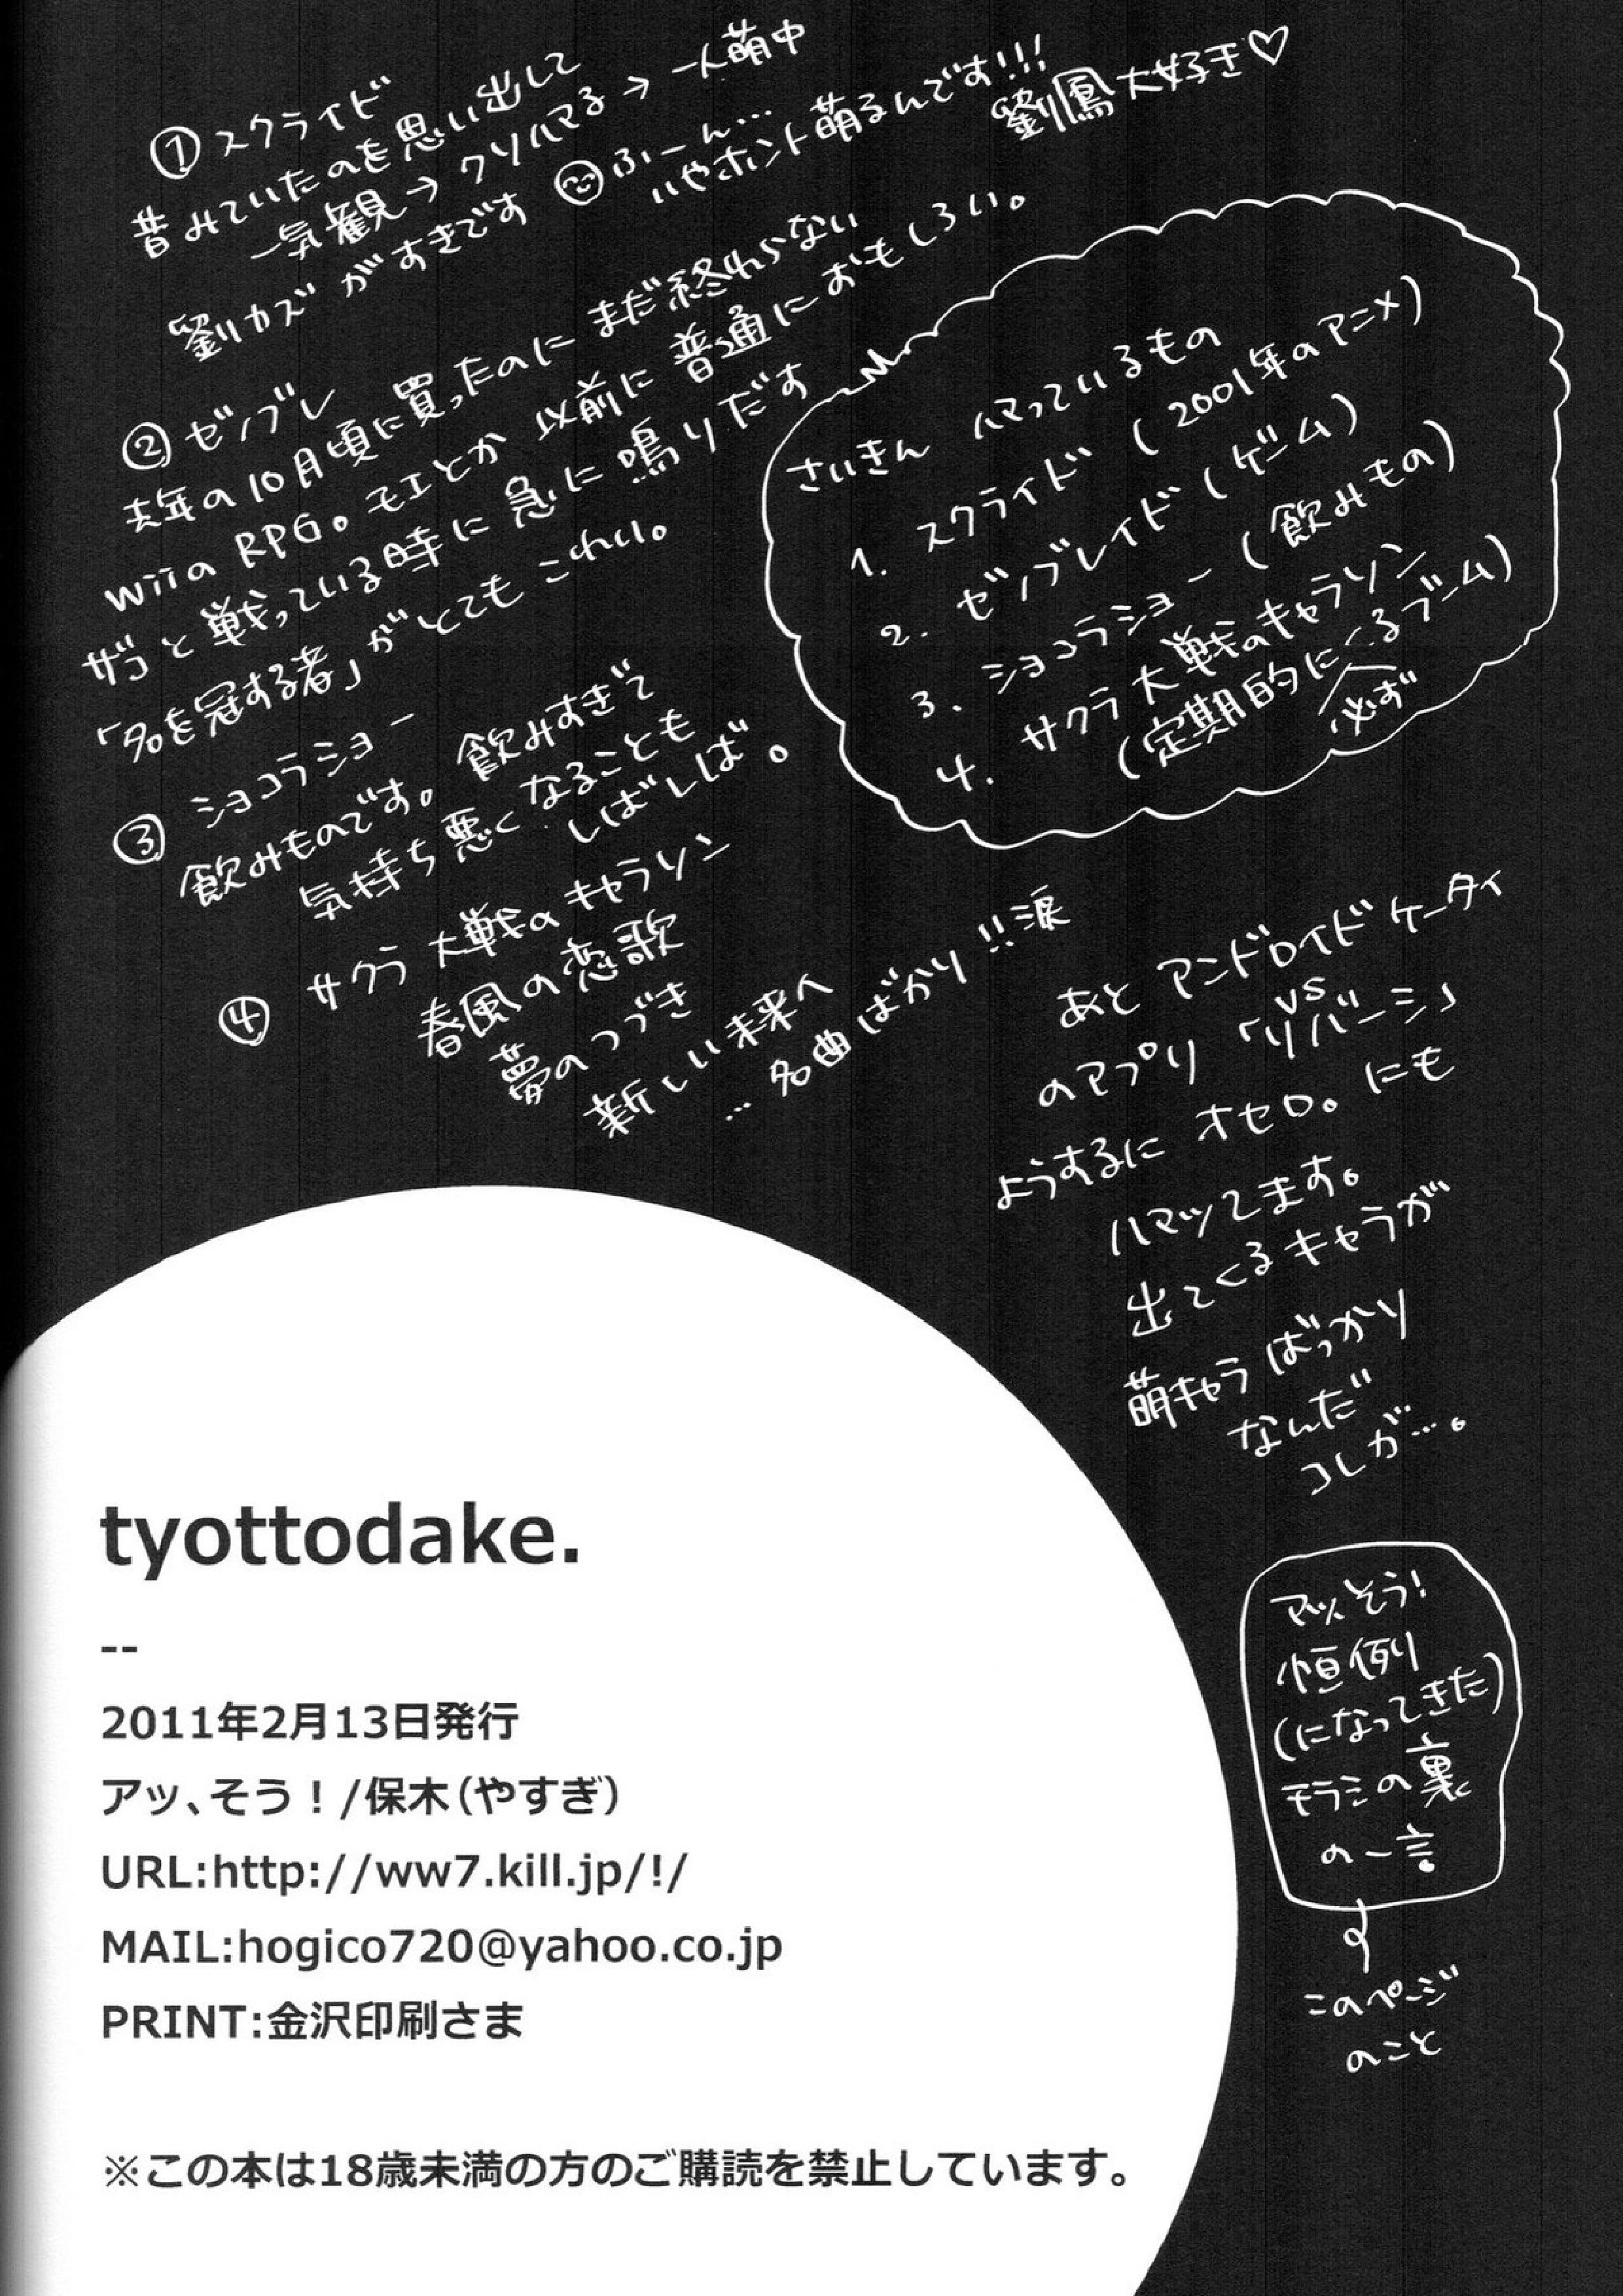 ①スクライド
昔みていたのを思い出して
一気観→クソハマる→一人萌中
劉カズがすきです ふーん…
いやホント萌るんです!!!
劉鳳大好き♡
②ゼノブレ
去年の10月頃に買ったのにまだ終わらない
wiiのRPG。モエとか以前に普通におもしろい。
ザコと戦っている時に急に鳴りだす
「名を冠する者」がとてもこわい。
③ショコラショー
飲みものです。飲みすぎて
気持ち悪くなることも
しばしば。
④サクラ大戦のキャラソン
春風の恋歌
夢のつづき
新しい未来へ
…名曲ばかり!!涙
さいきんハマっているもの
1. スクライド(2001年のアニメ)
2. ゼノブレイド(ゲーム)
3. ショコラショー(飲みもの)
4. サクラ大戦のキャラソン
(定期的にくるブーム)
必ず
あとアンドロイドケータイ
のアプリ「VSリバーシ」
ようするにオセロ。にも
ハマッてます。
出てくるキャラが
萌キャラばっかり
なんだ
コレが…。
アッそう!
恒例
(になってきた)
モラシの裏
の一言
このページ
のこと
tyottodake.
--
2011年2月13日発行
アッ、そう！/保木（やすぎ）
URL:http://ww7.kill.jp/!/
MAIL:hogico720@yahoo.co.jp
PRINT:金沢印刷さま
※この本は18歳未満の方のご購読を禁止しています。